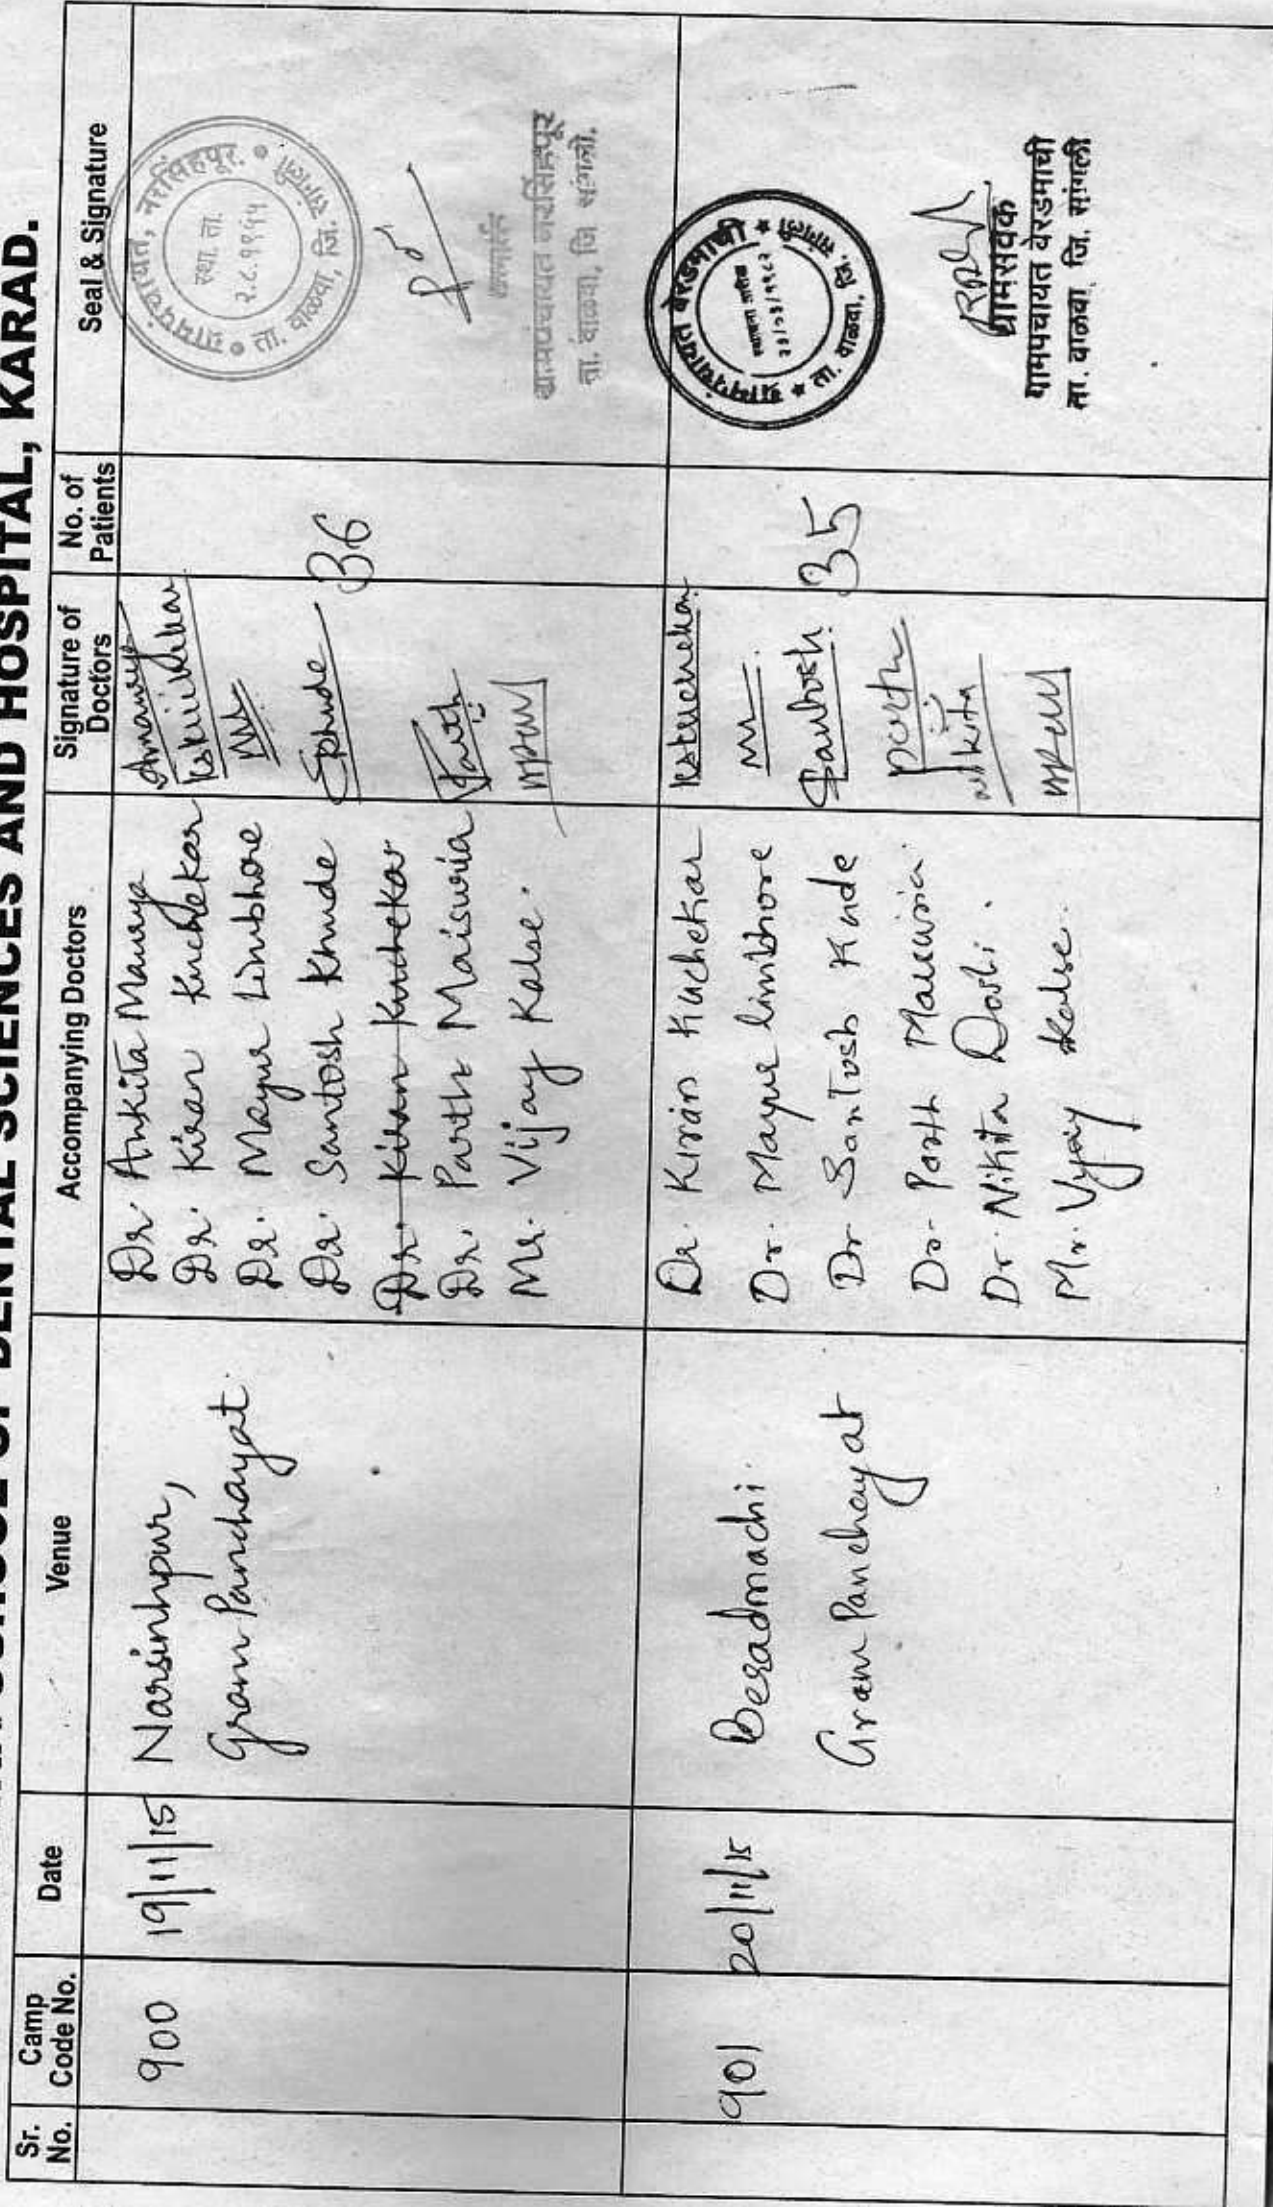 SCHOOL OF DENTAL SCIENCES AND HOSPITAL, KARAD.
Sr. No.
Camp Code No.
Date
Venue
Accompanying Doctors
Signature of Doctors
No. of Patients
Seal & Signature
900
19/11/15
Narsinhpur,
Gram Panchayat.
Dr. Ankita Maurya
Dr. Kiran Kuchekar
Dr. Mayur Limbhore
Dr. Santosh Khude
Dr. Kiran Kuchekar
Dr. Parth Maisuria
Mr. Vijay Kalse.
Amaurya
kskuchekar
Skhude
Parth
36
ग्रामपंचायत, नरसिंहपूर.
ता. वाळवा, जि. सांगली
स्था. ता.
२.८.१९५५
सरपंच
ग्रामपंचायत नरसिंहपूर
ता. वाळवा, जि सांगली.
901
20/11/15
Beradmachi
Gram Panchayat
Dr. Kiran Kuchekar
Dr. Mayur limbhore
Dr Santosh Kude
Dr. Parth Maisuria
Dr. Nikita Doshi.
Mr. Vijay Kalse.
kskuchekar
Santosh
parth
35
ग्रामपंचायत बेरडमाची
ता. वाळवा, जि. सांगली
स्थापना तारीख
ग्रामसेवक
ग्रामपंचायत बेरडमाची
ता. वाळवा, जि. सांगली